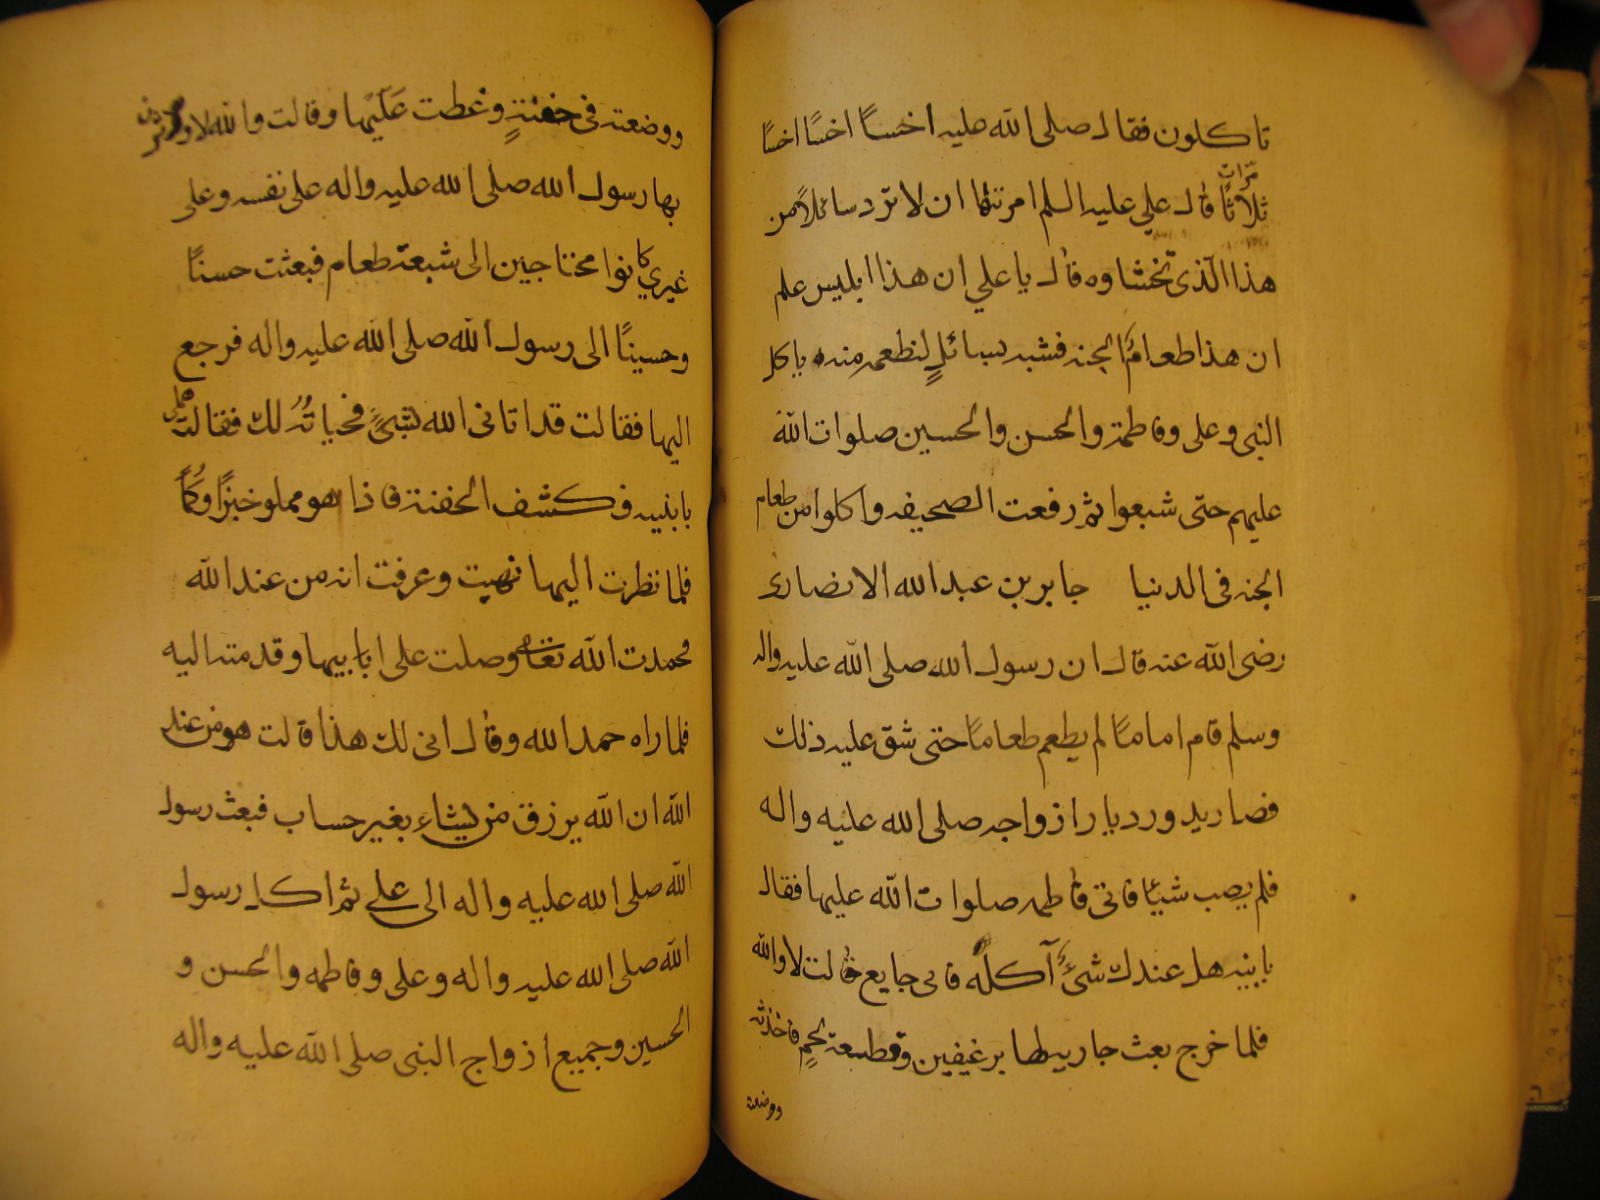 تاكلون فقال صلى الله عليه اخسأ اخسأ اخسأ
مرات
ثلاثا قال علي عليه السلم امرتنا ان لا ترد سائلا من
هذا الذى تخشاوه قال يا علي ان هذا ابليس علم
ان هذا طعام الجنه فشبه بسائل لنطعمه منه ياكل
النبى وعلى وفاطمة والحسن والحسين صلوات الله
عليهم حتى شبعوا ثم رفعت الصحيفه واكلوا من طعام
الجنه فى الدنيا جابر بن عبد الله الانصارى
رضى الله عنه قال ان رسول الله صلى الله عليه واله
وسلم قام اماما لم يطعم طعاما حتى شق عليه ذلك
فصار يد ورديار ازواجه صلى الله عليه واله
فلم يصب شيئا فاتى فاطمه صلوات الله عليها فقال
يابنيه هل عندك شئ آكله فانى جايع قالت لا والله
فلما خرج بعث جاريتها برغيفين وقطيعة لحم فاخذته
ووضعته
ووضعته فى جفنة وغطت عليها وقالت والله لاوثرن
بها رسول الله صلى الله عليه واله على نفسه وعلى
غيري كانوا محتاجين الى شبعة طعام فبعثت حسنا
وحسينا الى رسول الله صلى الله عليه واله فرجع
اليها فقالت قد اتانى الله بشئ فخباته لك فقال هلمى
يابنيه فكشف الجفنة فاذا هو مملو خبزا ولحما
فلما نظرت اليها بهتت وعرفت انه من عند الله
فحمدت الله تعالى وصلت على ابابيها وقدمته اليه
فلما راه حمد الله وقال انى لك هذا قالت هو من عند
الله ان الله يرزق من يشاء بغير حساب فبعث رسول
الله صلى الله عليه واله الى علي ثم اكل رسول
الله صلى الله عليه واله وعلى وفاطمه والحسن و
الحسين وجميع ازواج النبى صلى الله عليه واله